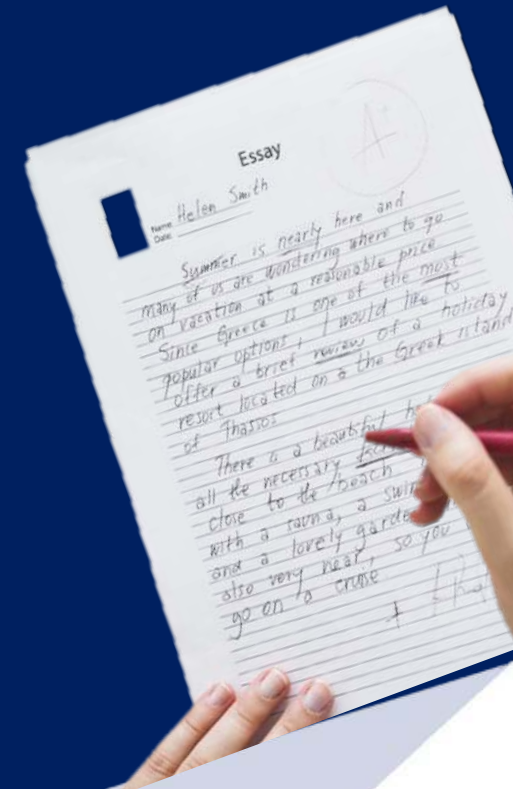 Essay
A
Name: Helen Smith
Date:
Summer is nearly here and
many of us are wondering where to go
on vacation at a reasonable price
Since Greece is one of the most
popular options, I would like to
offer a brief review of a holiday
resort located on a the Greek island
of Thassos
There is a beautiful
all the necessary
close to the beach
with a sauna, a
and a lovely
also very near, so you
go on a cruise